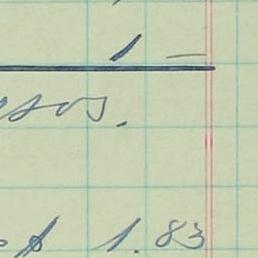 1 —
esos.
$ 1.83